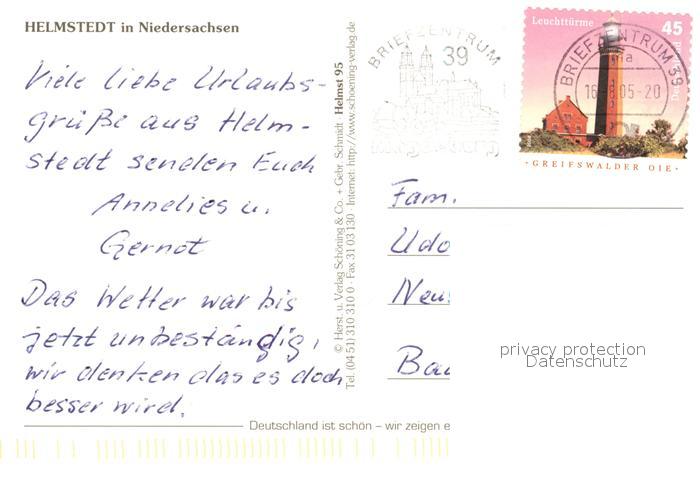 HELMSTEDT in Niedersachsen
Viele liebe Urlaubs-
grüße aus Helm-
stedt senden Euch
Annelies u.
Gernot
Das Wetter war bis
jetzt unbeständig,
wir denken das es doch
besser wird.
© Herst. u. Verlag Schöning & Co. + Gebr. Schmidt · Helmst 95
Tel. (04 51) 310 310 0 · Fax 31 03 130 · Internet: http://www.schoening-verlag.de
Deutschland ist schön – wir zeigen e
BRIEFZENTRUM
39
Leuchttürme
45
Deutschland
BRIEFZENTRUM 39
ma
05-20
· GREIFSWALDER OIE ·
Fam.
Udo
Neu
Bau
privacy protection
Datenschutz